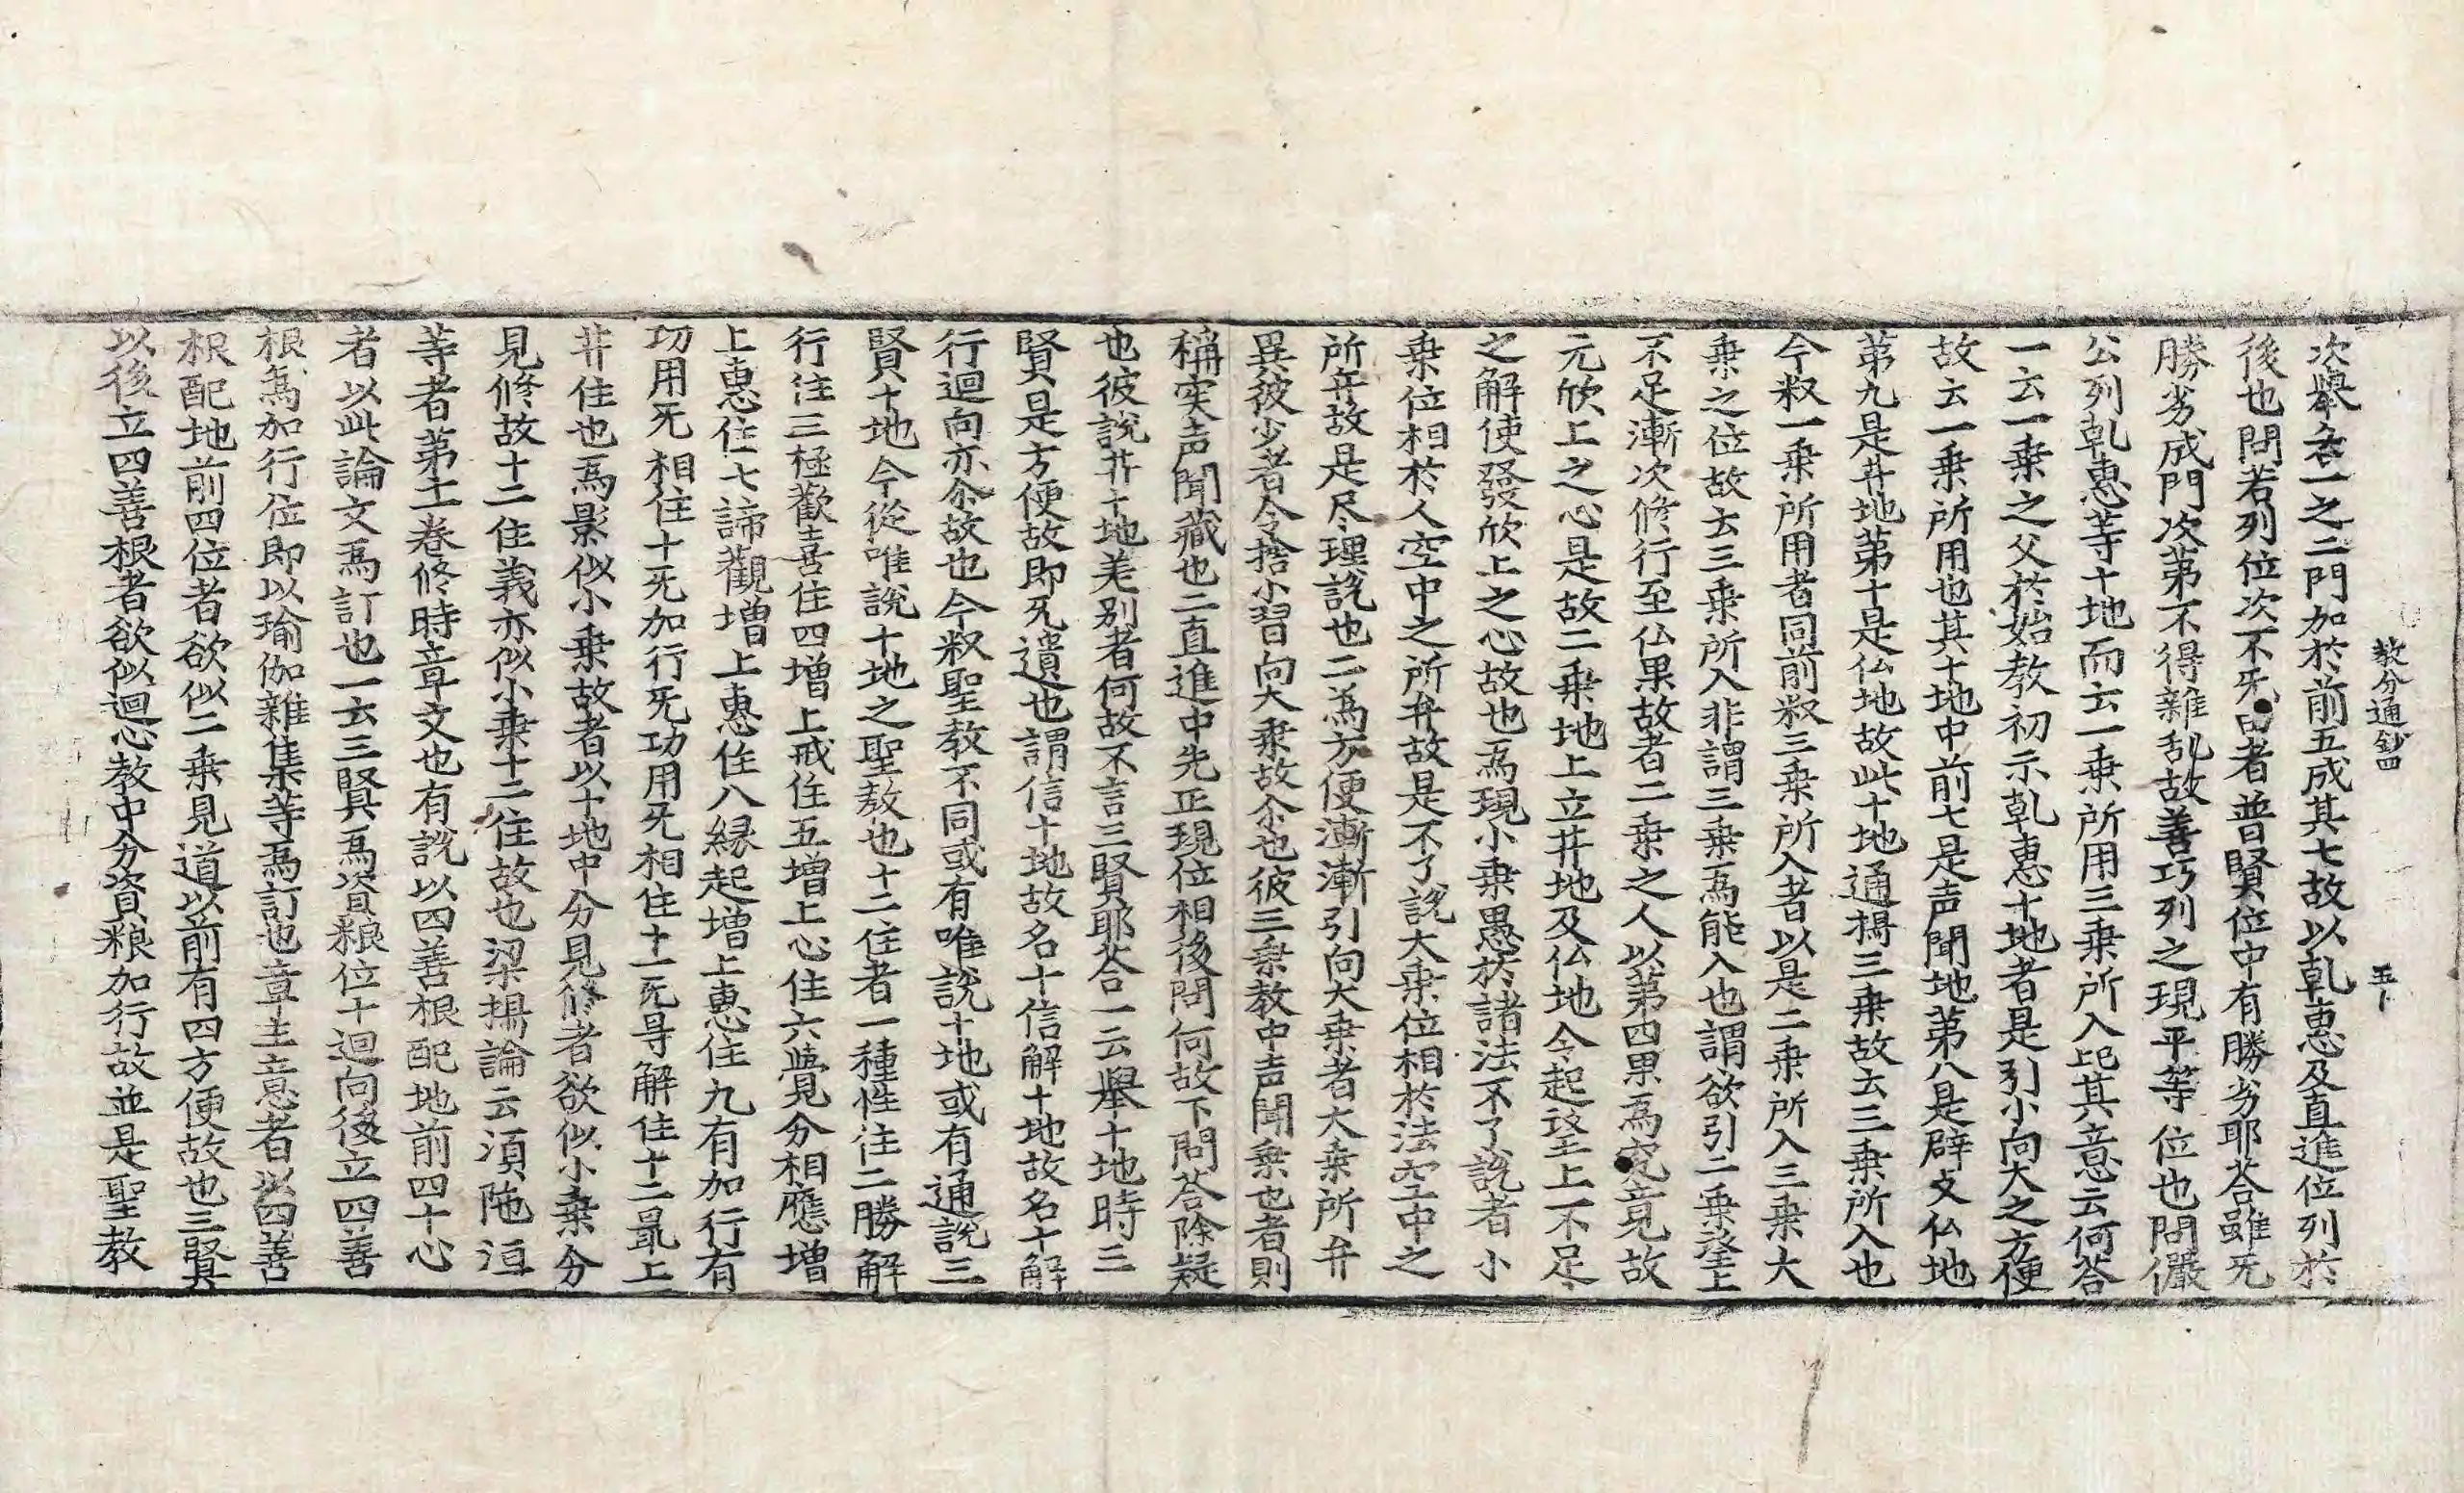 教分通鈔四 五卜
次舉各一之二門加於前五成其七故以乹惠及直進位列於
後也問若列位次不旡 者普賢位中有勝劣耶荅雖旡
勝劣成門次第不得雜乱故善巧列之現平等位也問儼
公列乹惠等十地而云一乗所用三乗所入訖其意云何荅
一云一乗之父於始教初示乹惠十地者是引小向大之方便
故云一乗所用也其十地中前七是声聞地第八是辟支仏地
第九是井地第十是仏地故此十地通攝三乗故云三乗所入也
今叙一乗所用者同前叙三乗所入者以是二乗所入三乗大
乗之位故云三乗所入非謂三乗爲能入也謂欲引二乗望上
不足漸次修行至仏果故者二乗之人以第四果爲究竟故
元欣上之心是故二乗地上立井地及仏地令起望上不足
之解使發欣上之心故也爲現小乗愚於諸法不了說者小
乗位相於人空中之所弁故是不了說大乗位相於法空中之
所弁故是尽理說也二為方便漸漸引向大乗者大乗所弁
異彼少者令捨小習向大乗故尒也彼三乗教中声聞乗也者則
稱实声聞藏也二直進中先正現位相後問何故下問荅除疑
也彼說井十地差别者何故不言三賢耶荅一云舉十地時三
賢是方便故即旡遺也謂信十地故名十信解十地故名十解
行迴向亦尒故也今叙聖教不同或有唯說十地或有通說三
賢十地今從唯說十地之聖教也十二住者一種性住二勝解
行住三極歡喜住四增上戒住五增上心住六覺分相應增
上惠住七諦觀增上惠住八縁起增上惠住九有加行有
功用旡相住十旡加行旡功用旡相住十一旡㝵解住十二最上
井住也爲影似小乗故者以十地中分見修者欲似小乗分
見修故十二住義亦似小乗十二住故也梁攝論云須陁洹
等者第十一卷修時章文也有說以四善根配地前四十心
者以此論文爲訂也一云三賢爲資粮位十迴向後立四善
根爲加行位即以瑜伽雜集等爲訂也章主意者以四善
根配地前四位者欲似二乗見道以前有四方便故也三賢
以後立四善根者欲似迴心教中分資粮加行故並是聖教